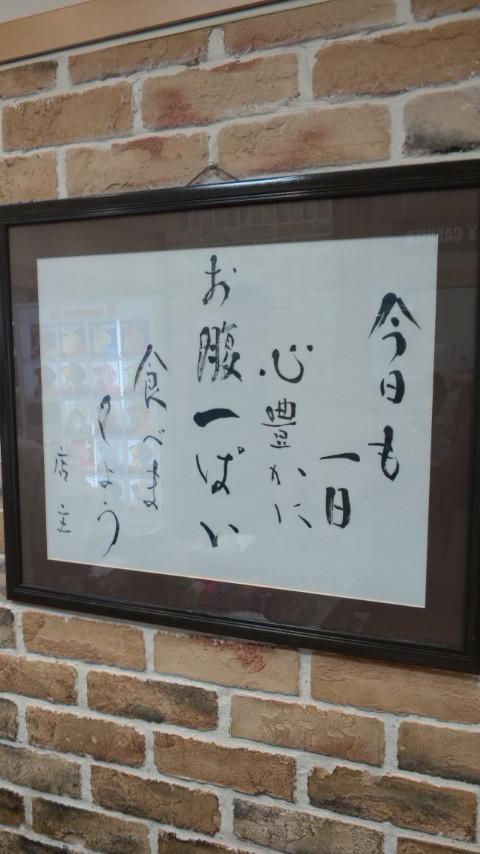 今日も
一日
心豊かに
お腹一ぱい
食べま
しょう
店主